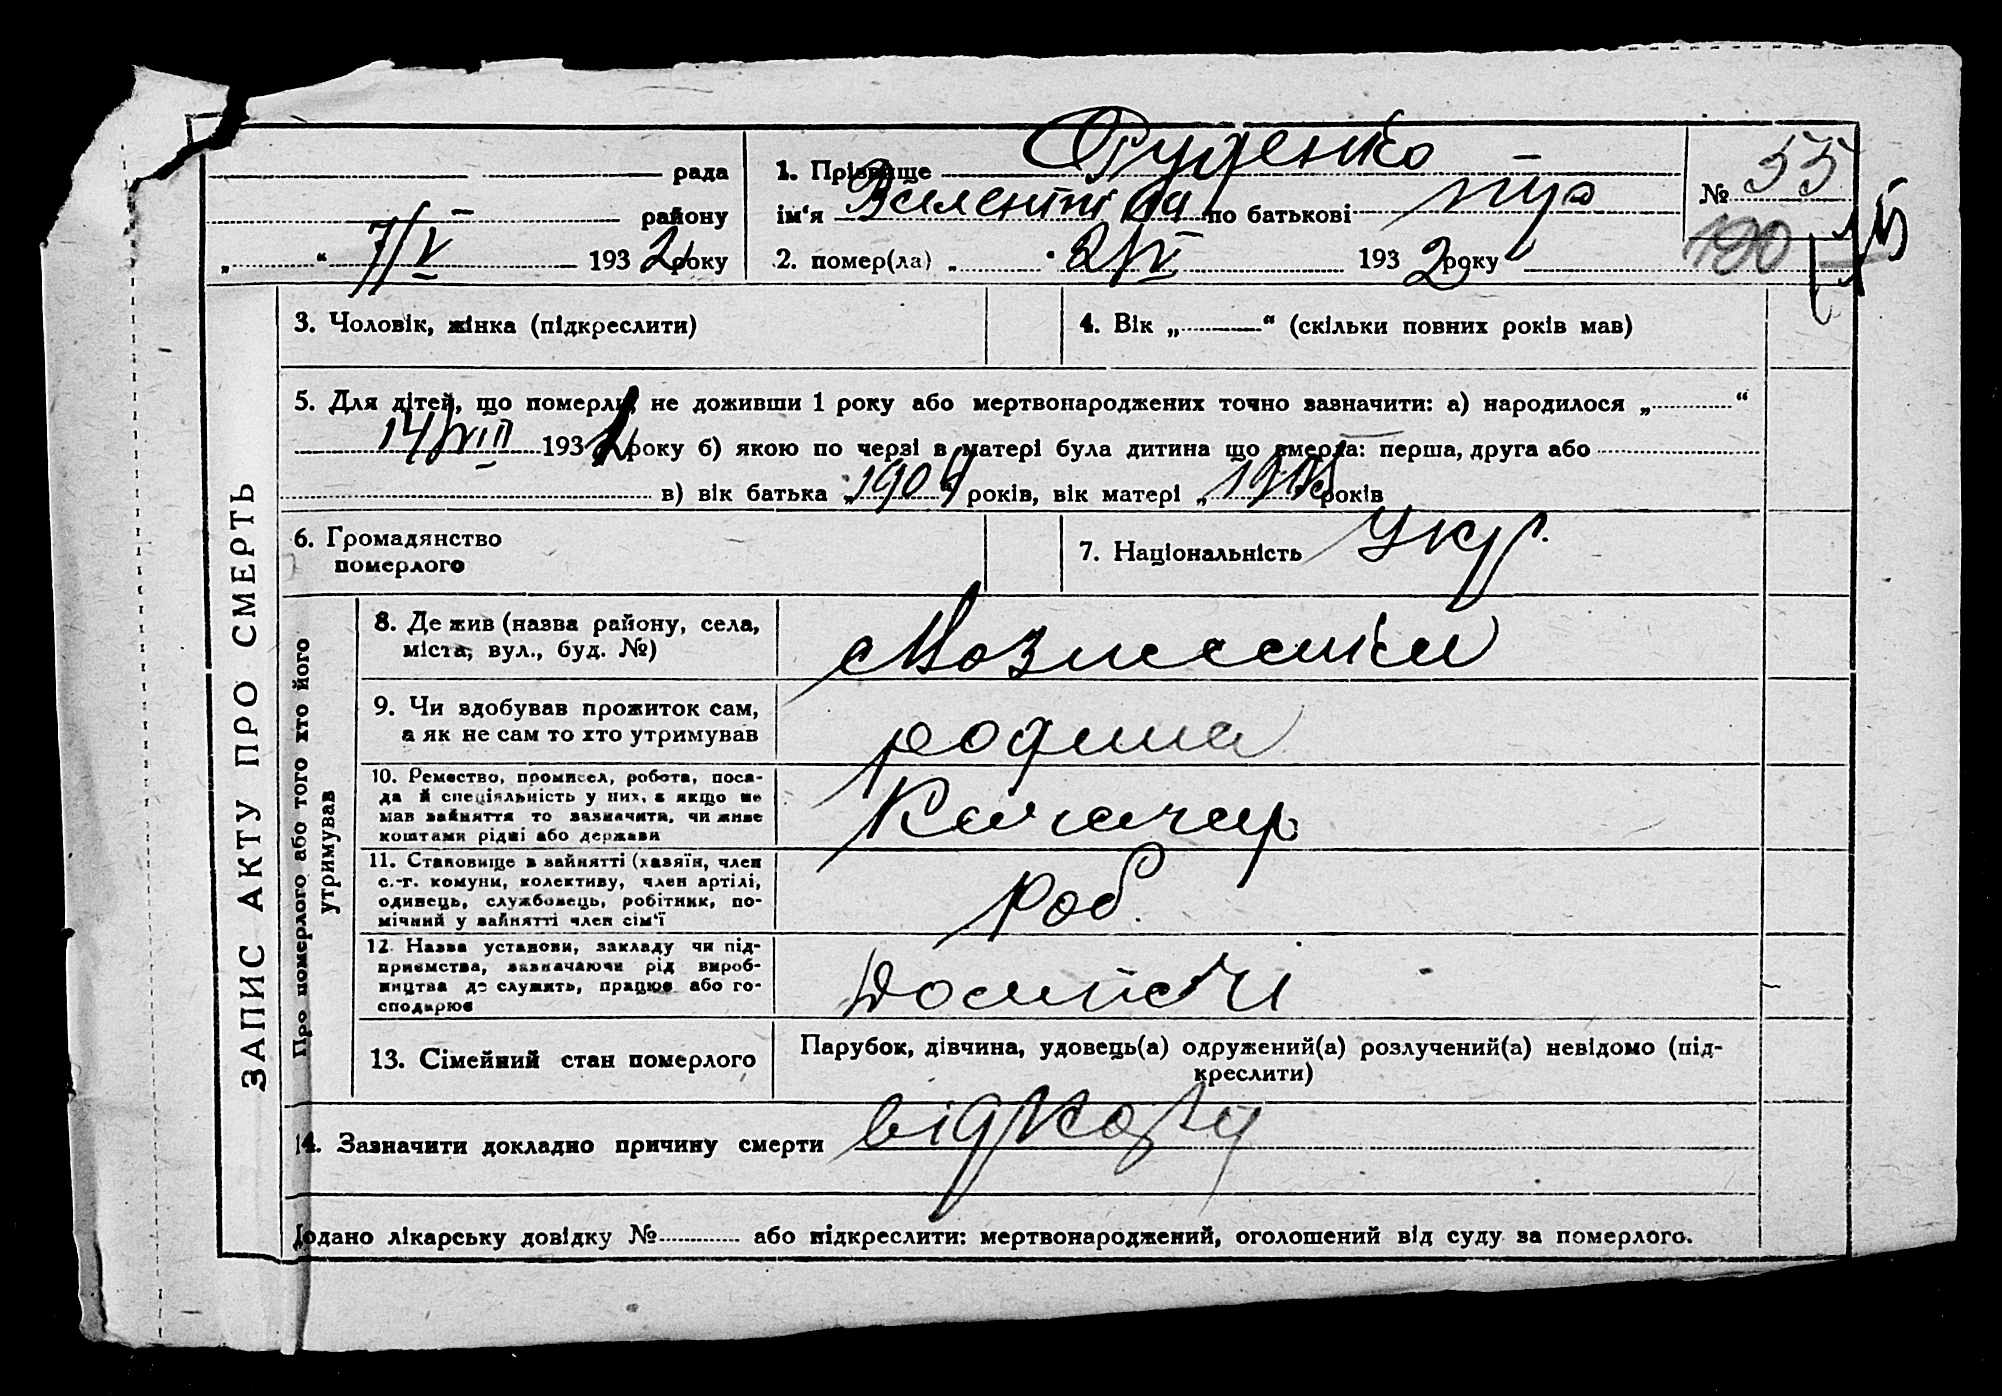 рада
району
„ “ 7/V 1932 року
1. Прізвище Руденко
ім‘я Валентіна по батькові
2. помер(ла) „ “ 1932 року
№ 55
190
3. Чоловік, жінка (підкреслити)
4. Вік „ “ (скільки повних років мав)
5. Для дітей, що померли, не доживши 1 року або мертвонароджених точно зазначити: а) народилося „ “
14/VIII 193 року б) якою по черзі в матері була дитина що вмерла: перша, друга або
в) вік батька „1904“ років, вік матері „ років
6. Громадянство
померлого
7. Національність Укр.
ЗАПИС АКТУ ПРО СМЕРТЬ
Про померлого або того хто його
утримував
8. Де жив (назва району, села,
міста, вул., буд. №)
9. Чи здобував прожиток сам,
а як не сам то хто утримував
родина
10. Ремество, промисел, робота, поса-
да й спеціяльність у них, а якщо не
мав зайняття то зазначити, чи живе
коштами рідні або держави
11. Становище в зайнятті (хазяїн, член
с.-г. комуни, колективу, член артілі,
одинець, службовець, робітник, по-
мічний у зайнятті член сім‘ї
Роб.
12. Назва установи, закладу чи під-
приємства, зазначаючи рід вироб-
ництва де служить, працює або го-
сподарює
13. Сімейний стан померлого
Парубок, дівчина, удовець(а) одружений(а) розлучений(а) невідомо (під-
креслити)
14. Зазначити докладно причину смерти від кору
Додано лікарську довідку № або підкреслити: мертвонароджений, оголошений від суду за померлого.